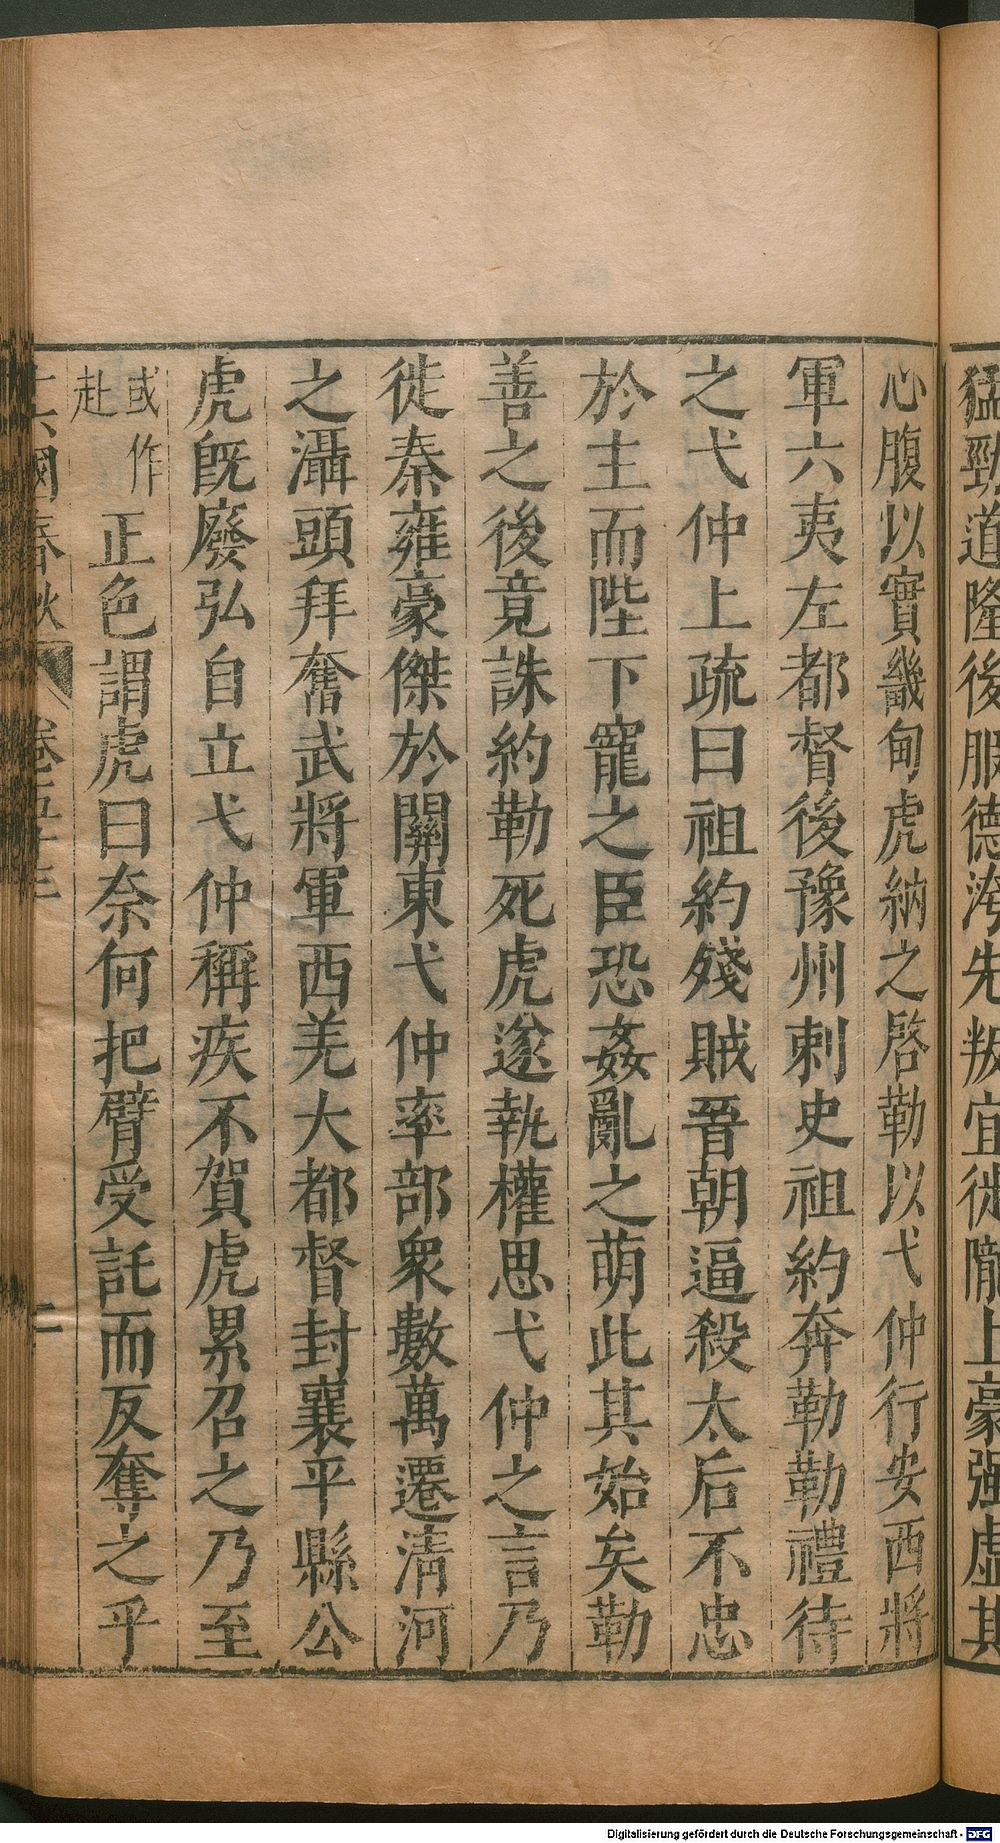 猛勁道隆後服德洿先叛宜徙隴上豪强虛其
心腹以實畿甸虎納之啓勒以弋仲行安西將
軍六夷左都督後豫州刺史祖約奔勒勒禮待
之弋仲上疏曰祖約殘賊晉朝逼殺太后不忠
於主而陛下寵之臣恐姦亂之萌此其始矣勒
善之後竟誅約勒死虎遂執權思弋仲之言乃
徙秦雍豪傑於關東弋仲率部衆數萬遷清河
之灄頭拜奮武將軍西羌大都督封襄平縣公
虎旣廢弘自立弋仲稱疾不賀虎累召之乃至
或作
赴
正色謂虎曰奈何把臂受託而反奪之乎
十六國春秋 卷五十三 二
Digitalisierung gefördert durch die Deutsche Forschungsgemeinschaft - DFG